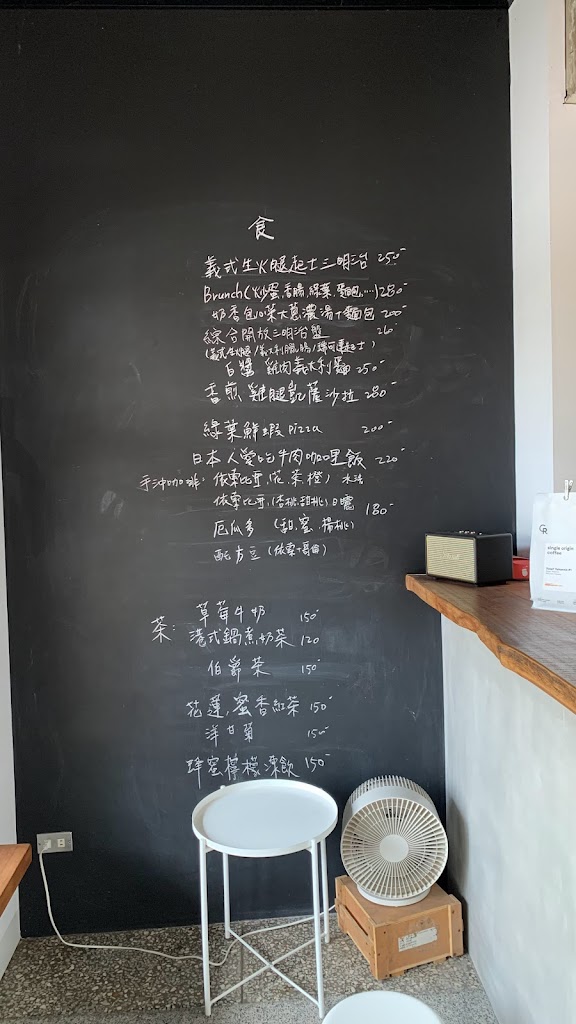 食
義式生火腿起士三明治 250-
Brunch(火炒蛋,香腸,綠葉,麵包,...)280-
奶香包心菜大蔥濃湯+麵包 200-
綜合開放三明治盤 260-
白醬雞肉義大利麵 250-
香煎雞腿凱薩沙拉 280-
綠葉鮮蝦pizza 200-
日本人愛吃牛肉咖哩飯 220-
手沖咖啡: 依索比亞,(花,茶,橙) 水洗
依索比亞,(香桃,甜桃)日曬 180-
厄瓜多 (甜,蜜,楊桃)
配方豆(依索+哥倫)
草莓牛奶 150-
茶: 港式鍋煮奶茶 120
伯爵茶 150-
花蓮,蜜香紅茶 150-
洋甘菊 150-
蜂蜜檸檬凍飲 150-
CR
single origin
coffee